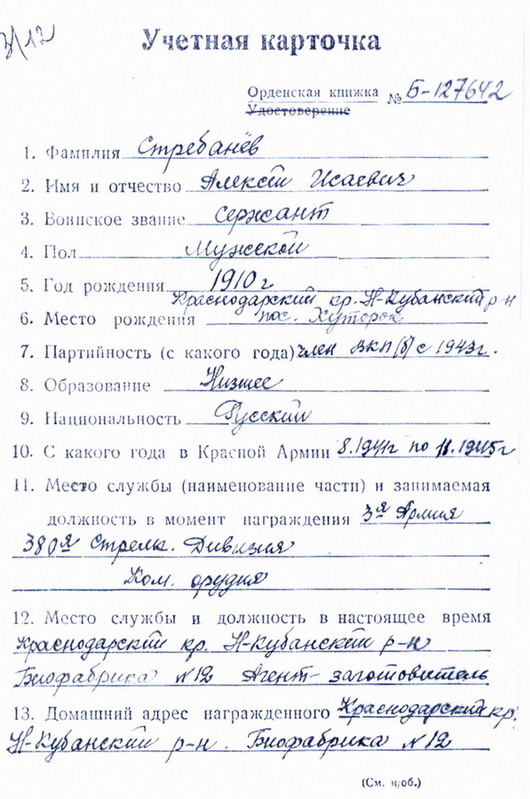 3/12
Учетная карточка
Орденская книжка № Б-127642
Удостоверение
1. Фамилия Стребанёв
2. Имя и отчество Алексей Исаевич
3. Воинское звание сержант
4. Пол Мужской
5. Год рождения 1910 г
Краснодарский кр. Н-Кубанский р-н
6. Место рождения пос. Хуторок
7. Партийность (с какого года) член ВКП(б) с 1943 г.
8. Образование Низшее
9. Национальность Русский
10. С какого года в Красной Армии 8.1941г по 11.1945г
11. Место службы (наименование части) и занимаемая
должность в момент награждения 3я Армия
380я Стрелк. Дивизия
Ком. орудия
12. Место службы и должность в настоящее время
Краснодарский кр. Н-Кубанский р-н
Биофабрика N12 Агент-заготовитель
13. Домашний адрес награжденного Краснодарский кр.
Н-Кубанский р-н. Биофабрика N12
(См. н/об.)